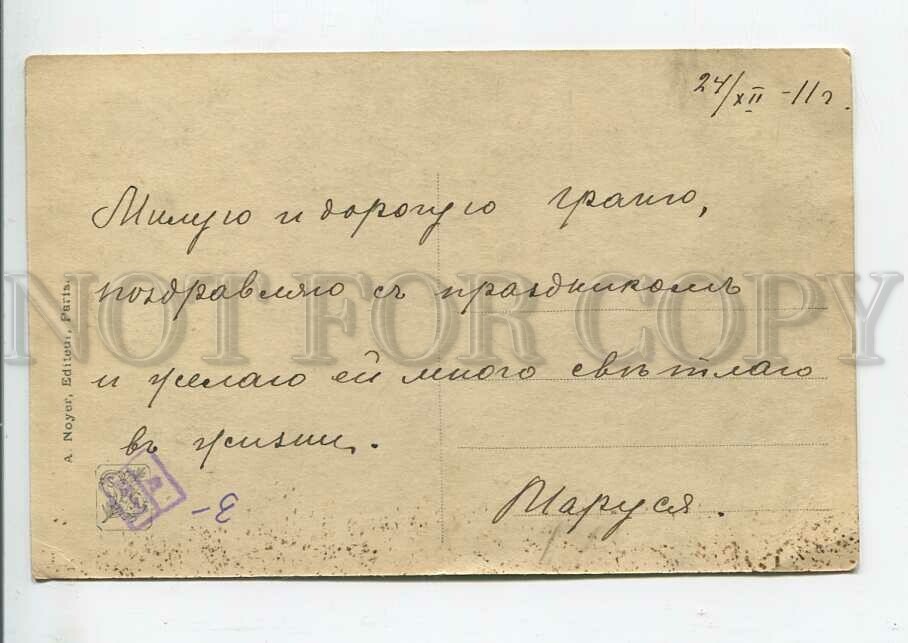 24/XII -11 г.
Милую и дорогую граню,
поздравляю съ праздникомъ
и желаю ей много свѣтлаго
въ жизни.
Маруся.
A. Noyer, Editeur, Paris.
NOT FOR COPY